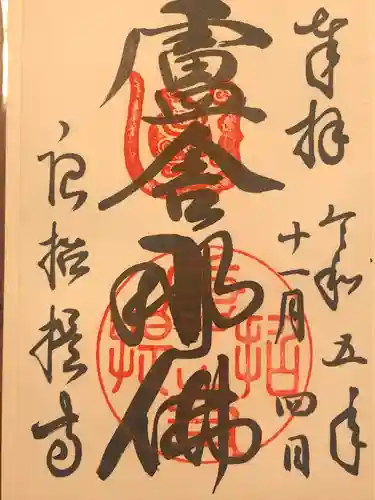 奉拝
令和五年
十一月四日
盧舎那佛
唐招提寺